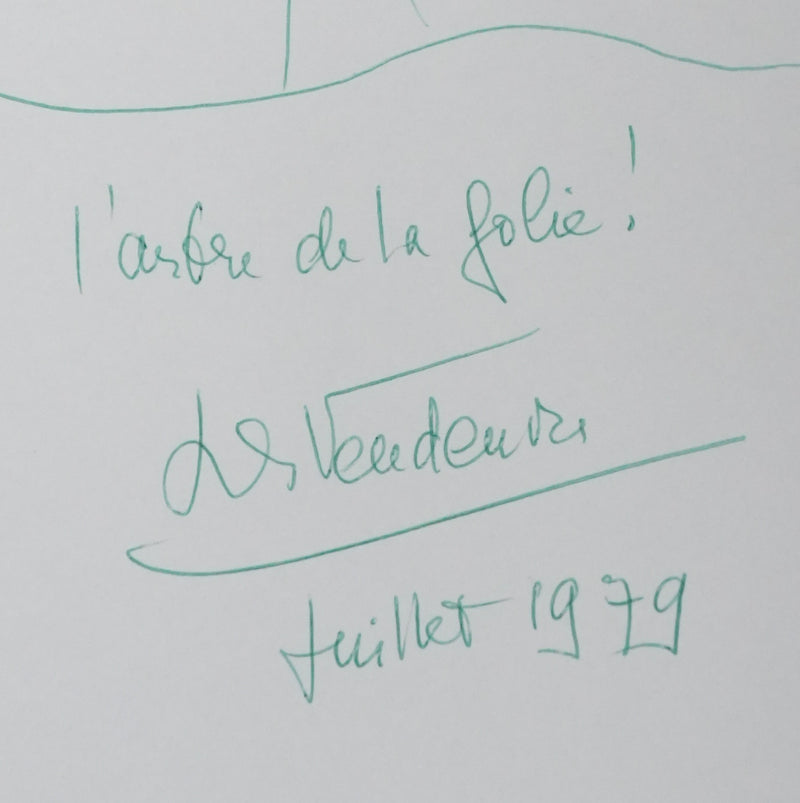 l'arbre de la folie!
Juillet 1979